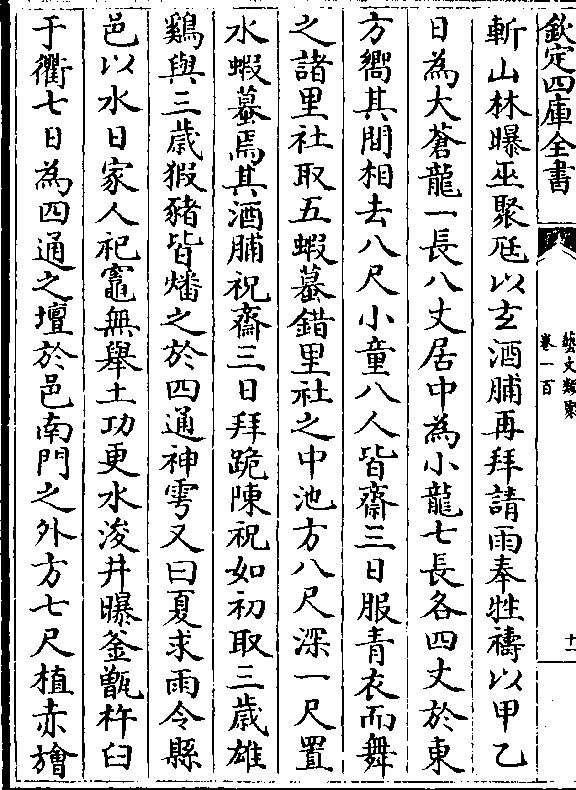 欽定四庫全書
藝文類聚
卷一百
十一
斬山林曝巫聚尫以玄酒脯再拜請雨奉牲禱以甲乙
日為大蒼龍一長八丈居中為小龍七長各四丈於東
方嚮其間相去八尺小童八人皆齋三日服青衣而舞
之諸里社取五蝦蟇錯里社之中池方八尺深一尺置
水蝦蟇焉其酒脯祝齋三日拜跪陳祝如初取三歲雄
鷄與三歲猳豬皆燔之於四通神雩又曰夏求雨令縣
邑以水日家人祀竈無舉土功更水浚井曝釜甑杵臼
于衢七日為四通之壇於邑南門之外方七尺植赤旝